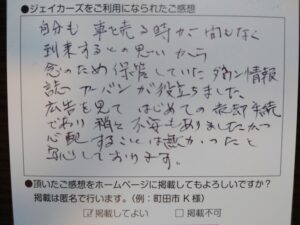 ●ジェイカーズをご利用になられたご感想
自分も 車を売る時が間もなく
到来するとの思いから
念のため保管していた タウン情報
誌 クーパンが役立ちました
広告を見て はじめての 売却手続
であり 稍々 不安もありましたが
心配することは無かったと
感じております。
●頂いたご感想をホームページに掲載してもよろしいですか?
掲載は匿名で行います。(例:町田市K様)
☑掲載してよい □掲載不可